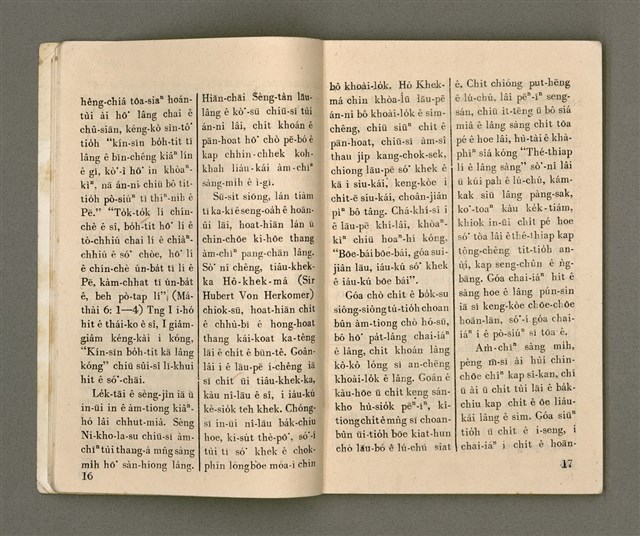 hêng-chiâ tōa-siaⁿ hoán-
tùi ài hō͘ lâng chai ê
chū-siān, kéng-kò sìn-tô͘
tio̍h "kín-sīn bo̍h-tit tī
lâng ê bīn-chêng kiâⁿ lín
ê gī, kò͘-ì hō͘ in khòaⁿ-
kìⁿ, nā án-ni chiū bô tit-
tio̍h pò-siúⁿ tī thiⁿ-ni̍h ê
Pē." "To̍k-to̍k lí chín-
chè ê sî, bo̍h-tit hō͘ lí ê
tò-chhiú chai lí ê chiàⁿ-
chhiú ê só͘ chòe, hō͘ lí
ê chín-chè ún-bát tī lí ê
Pē, kàm-chhat tī ún-bát
ê, beh pò-tap lí" (Má-
thài 6: 1—4) Tng I í-hó
hit ê thái-ko ê sî, I giâm-
giâm kéng-kài i kóng,
"Kín-sīn bo̍h-tit kā lâng
kóng" chiū sûi-sî lī-khui
hit ê só͘-chāi.
Le̍k-tāi ê sèng-jîn iā ū
in-ūi in ê àm-tiong kiâⁿ-
hó lâi chhut-miâ. Sèng
Ni-kho-la-su chiū-sī àm-
chīⁿ tùi thang-á mn̂g sàng
mi̍h hō͘ sàn-hiong lâng.
16
Hiān-chāi Sèng-tàn lāu-
lâng ê kò͘-sū chiū-sī tùi
án-ni lâi, chit khoán ê
pān-hoat hō͘ chò pē-bó ê
kap chhin-chhek koh-
khah liáu-kái àm-chīⁿ
sàng-mi̍h ê ì-gī.
Sū-si̍t siōng, lán tiàm
tī ka-kī ê seng-oa̍h ê hoân-
ûi lāi, hoat-hiān lán ū
chin-chōe ki-hōe thang
àm-chīⁿ pang-chān lâng.
Só͘ ní chêng, tiâu-khek-
ka Hô-khek-má (Sir
Hubert Von Herkomer)
chiok-sū, hoat-hiān chi̍t
ê chhù-bī ê hong-hoat
thang kái-koat ka-têng
lāi ê chi̍t ê būn-tê. Goân-
lâi i ê lāu-pē í-chêng iā
sī chi̍t ūi tiâu-khek-ka,
kàu nî-lāu ê sî, i iáu-kú
kè-sio̍k teh khek. Chóng-
sī in-ūi nî-lāu ba̍k-chiu
hoe, ki-su̍t thè-pō͘, só͘-í
tùi tī só͘ khek ê chok-
phín lóng bōe móa-ì chin
bô khoài-lo̍k. Hô Khek-
má chin khòa-lū lāu-pē
án-ni bô khoài-lo̍k ê sim-
chêng, chiū siūⁿ chi̍t ê
pān-hoat, chiū-sī àm-sî
thau ji̍p kang-chok-sek,
chiong lāu-pē só͘ khek ê
kā i siu-kái, keng-kòe i
chi̍t-ē siu-kái, choân-jiân
pìⁿ bô tâng. Chá-khí-sî i
ê lāu-pē khí-lâi, khòaⁿ-
kìⁿ chiū hoaⁿ-hí kóng.
"Bōe-bái bōe-bái, góa sui-
jiân lāu, iáu-kú só͘ khek
ê iáu-kú bōe bái".
Góa chò chi̍t ê bo̍k-su
siông-siông tú-tio̍h choan
bûn àm-tiong chò hó-sū,
bô hō͘ pa̍t-lâng chai-iáⁿ
ê lâng, chit khoán lâng
kò-kò lóng sī an-chēng
khoài-lo̍k ê lâng. Goán ê
kàu-hōe ū chi̍t keng sán-
kho hù-sio̍k pēⁿ-īⁿ, kî-
tiong chi̍t ê mn̄g sī choan-
bûn ūi-tio̍h bōe kiat-hun
chò lāu-bó ê lú-chú siat
ê. Chit chióng put-hēng
ê lú-chú, lâi pēⁿ-īⁿ seng-
sán, chiū it-tēng ū bô siá
miâ ê lâng sàng chi̍t tōa
pé ê hoe lâi, hù-tài ê khà-
phìⁿ siá kóng "Thé-thiap
lí ê lâng sàng" só͘-ní lāi
ū kúi pah ê lú-chú, kám-
kak siū lâng pàng-sak,
ko͘-toaⁿ kàu ke̍k-tiám,
khiok in-ūi chi̍t pé hoe
só͘ tòa lâi ê thé-thiap kap
tông-chêng tit-tio̍h an-
ùi, kap seng-chûn ê n̂g-
bāng. Góa chai-iáⁿ hit ê
sàng hoe ê lâng pún-sin
iā sī keng-kòe chōe-chōe
hoân-lān, só͘-í góa chai-
iáⁿ i ê pò-siúⁿ sī tōa ê.
Am̀-chīⁿ sàng mi̍h,
pēng m̄-sī ài hùi chin-
chōe chîⁿ kap sî-kan, chí
ū ài ū chi̍t tùi lāi ê ba̍k-
chiu kap chi̍t ê ōe liáu-
kái lâng ê sim. Góa siūⁿ
tio̍h ū chi̍t ê i-seng, i
chai-iáⁿ i chi̍t ê hoān-
17